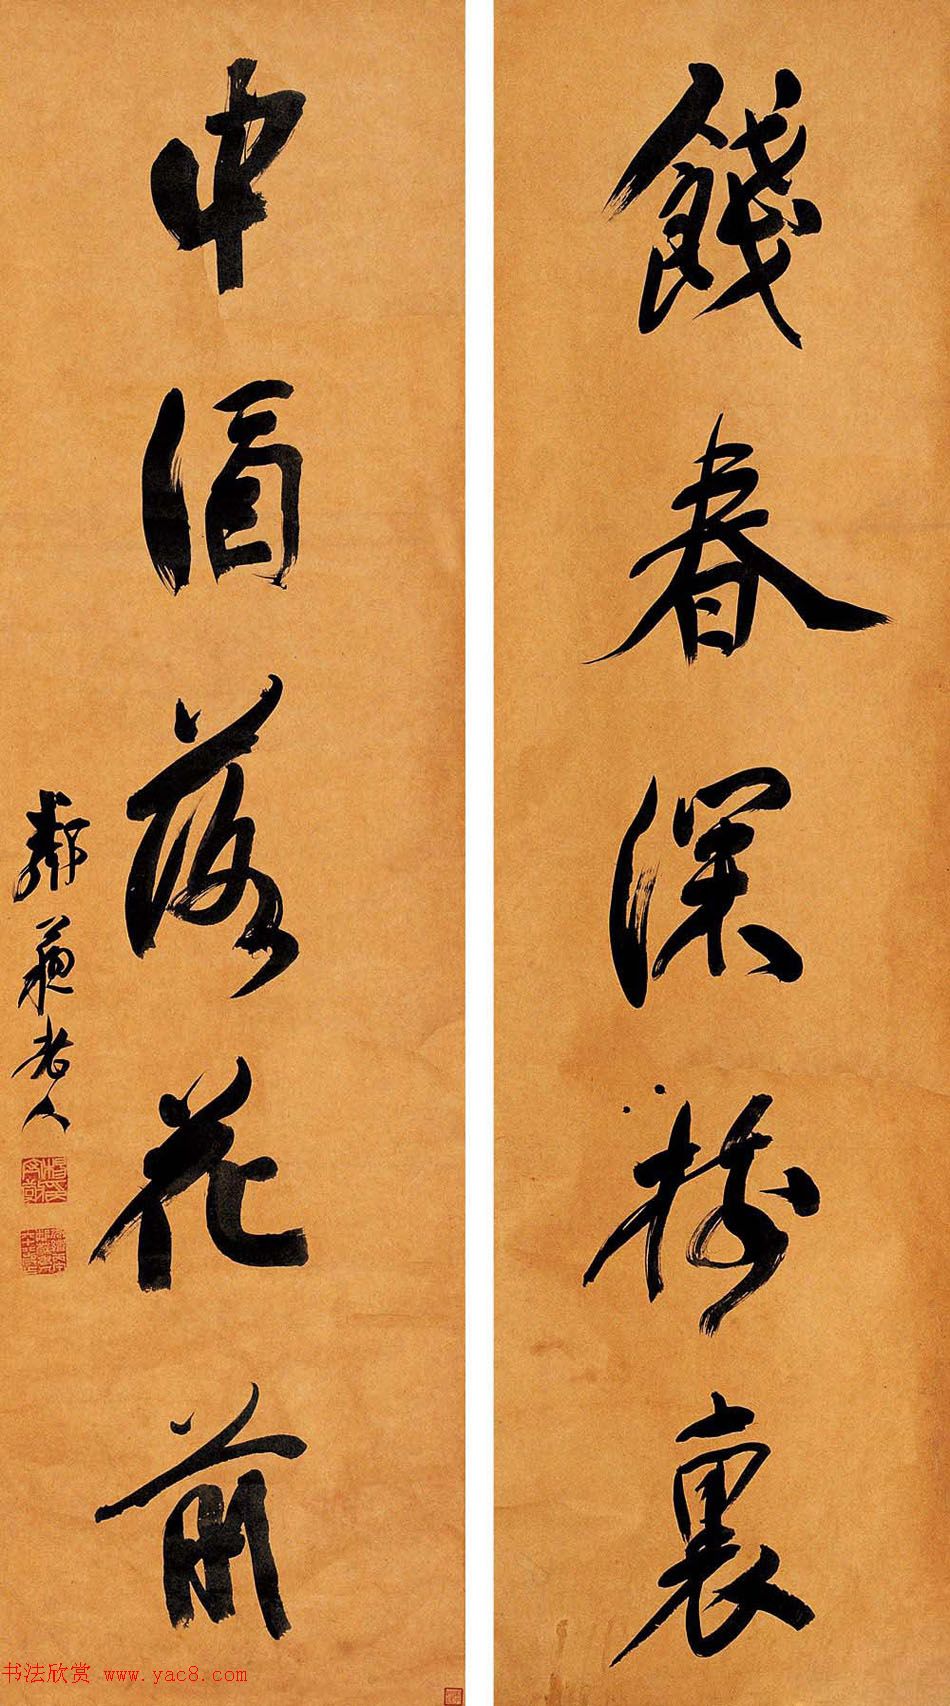 餞春深樹裏
中酒落花前
鄰蘇老人
书法欣赏 www.yac8.com